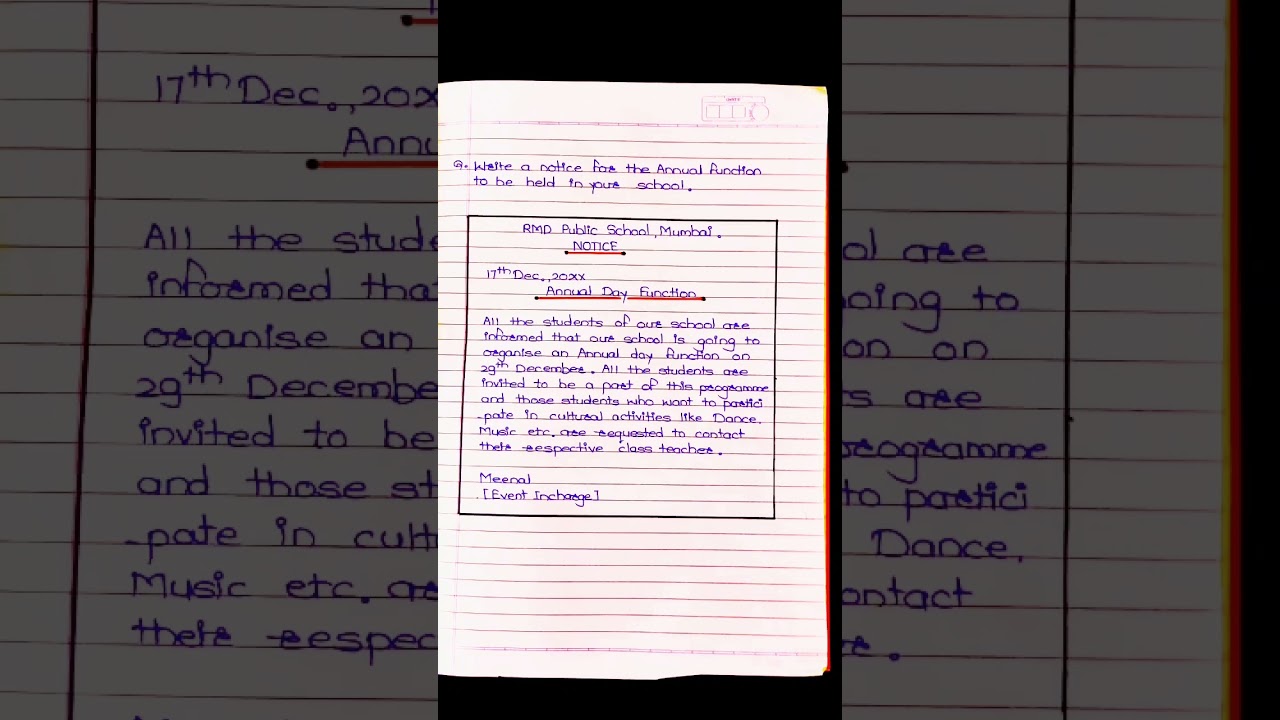 Q. Write a notice for the Annual function
to be held in your school.
RMD Public School, Mumbai.
NOTICE
17th Dec., 20XX
Annual Day Function
All the students of our school are
informed that our school is going to
organise an Annual day function on
29th December. All the students are
invited to be a part of this programme
and those students who want to partici
-pate in cultural activities like Dance,
Music etc. are requested to contact
their respective class teacher.
Meenal
[Event Incharge]